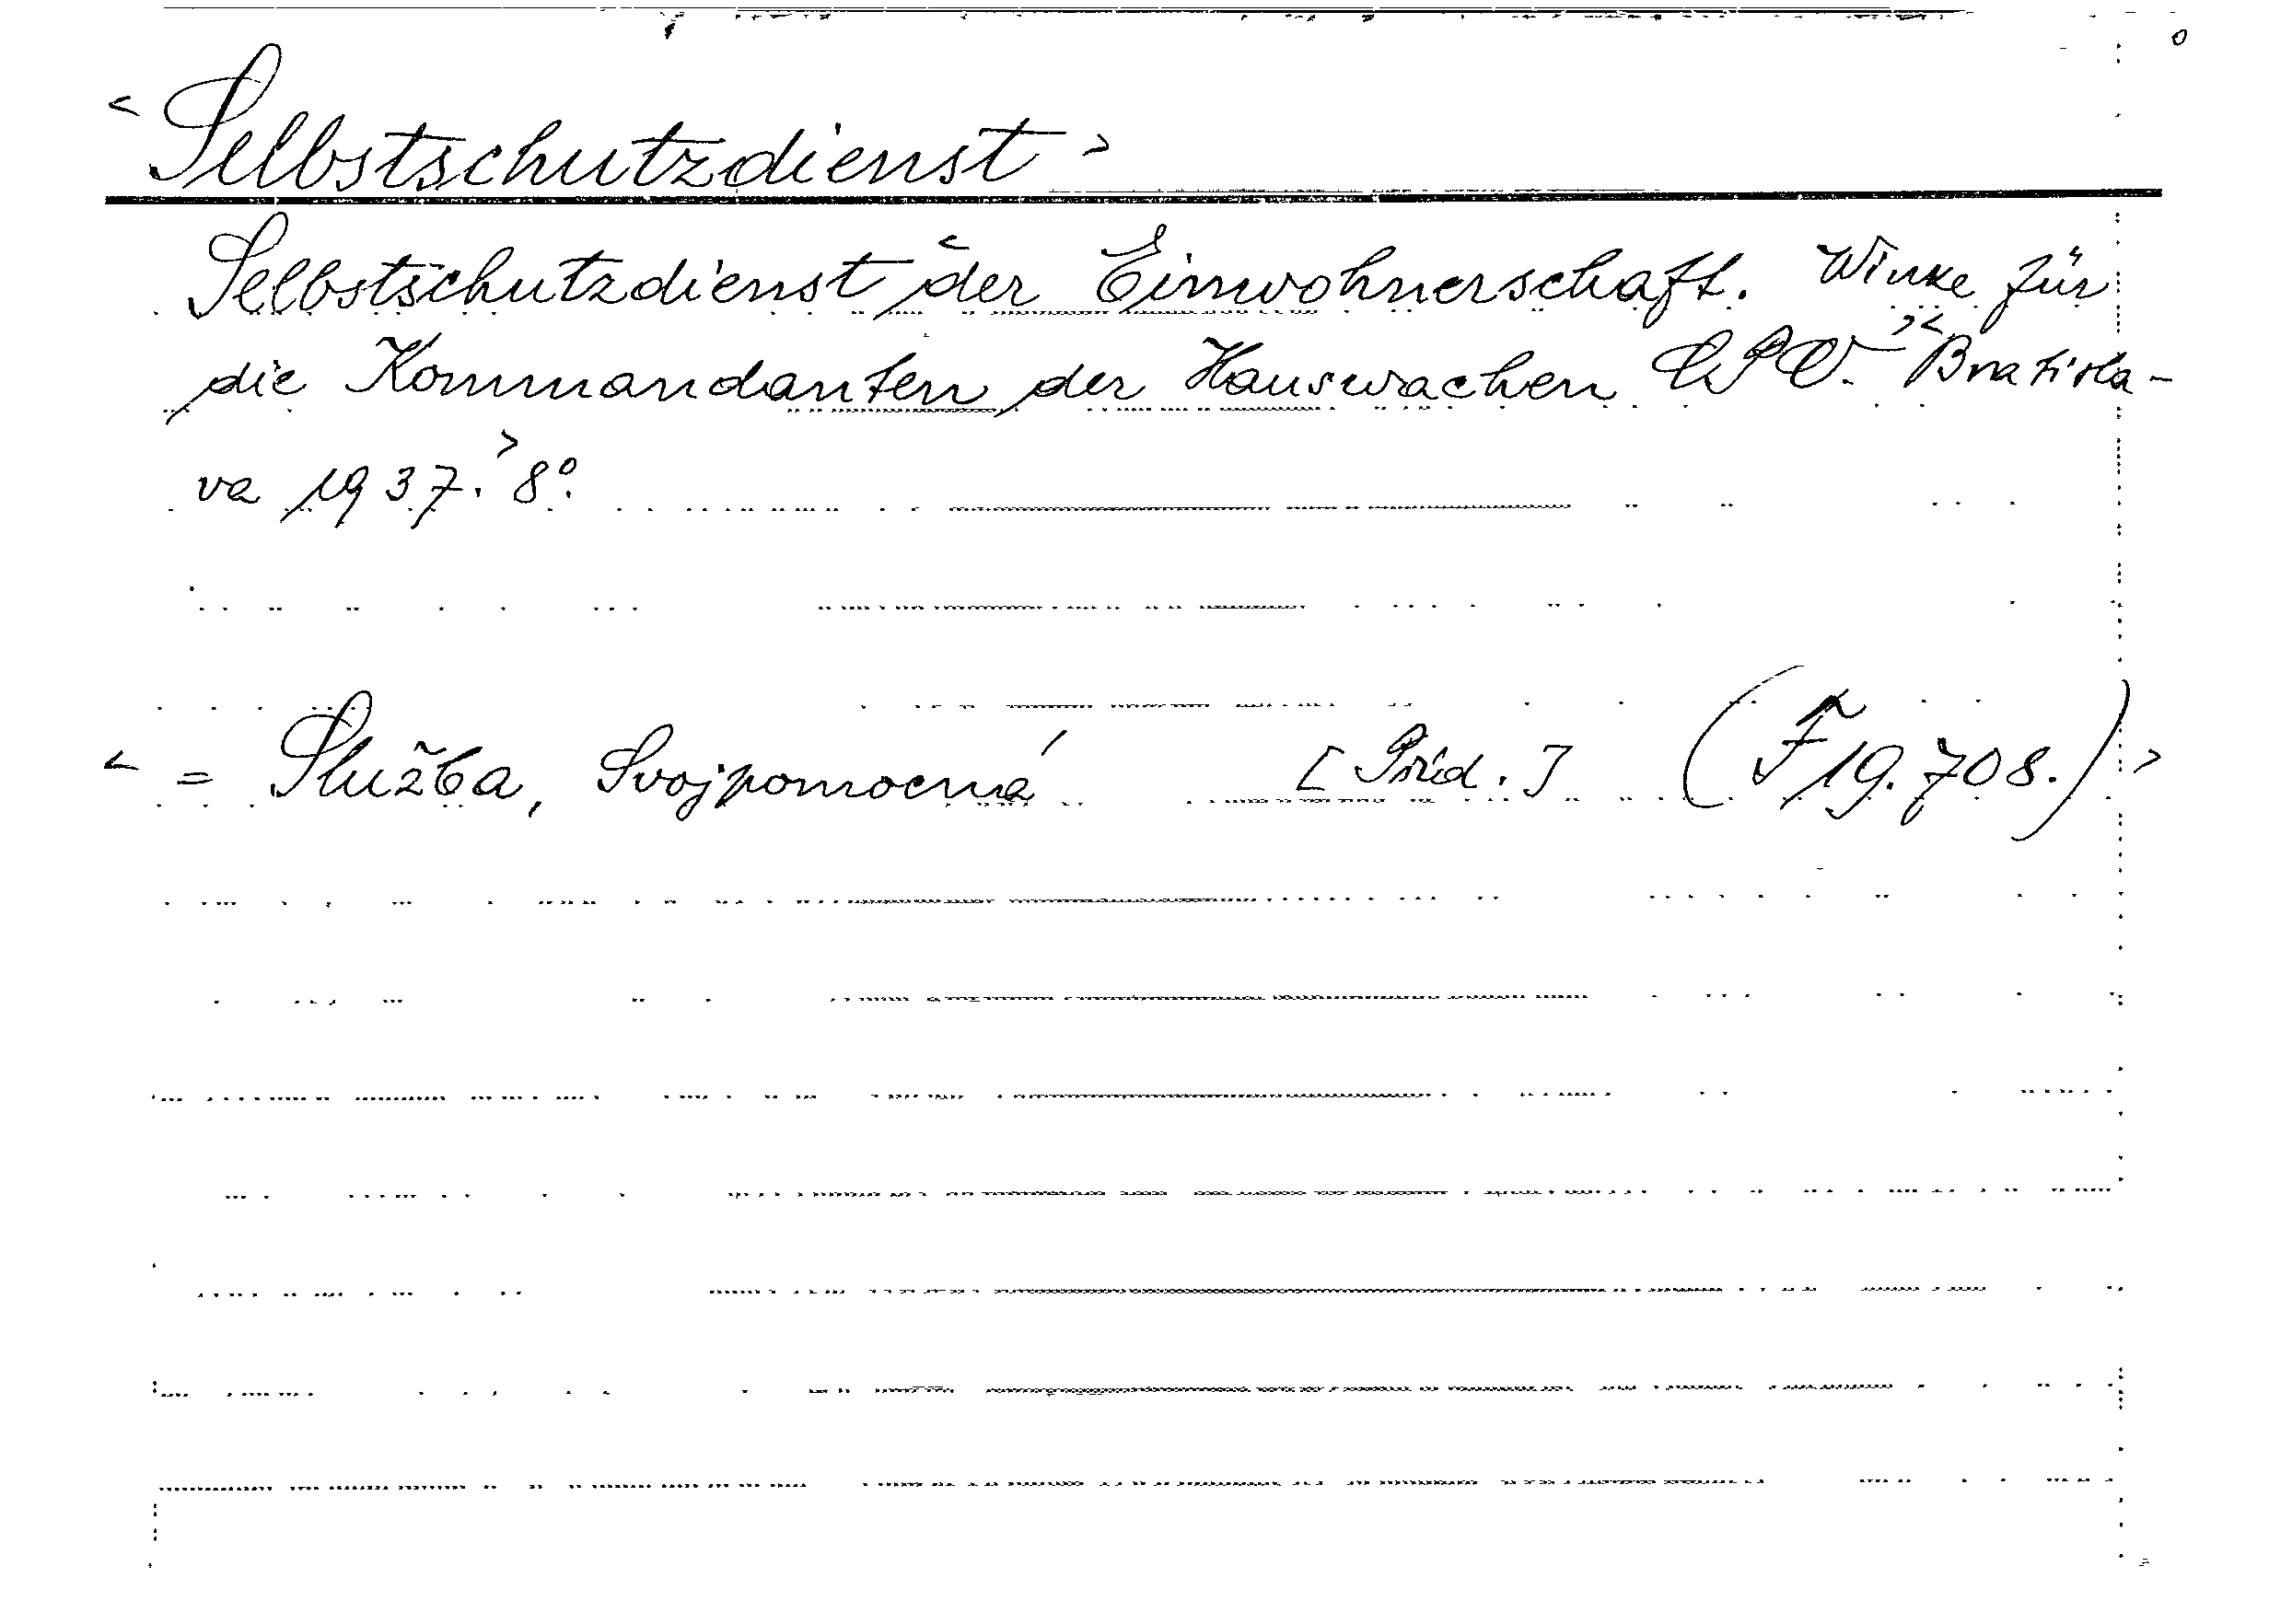 < Selbstschutzdienst >
Selbstschutzdienst < der Einwohnerschaft. Winke für
die Kommandanten der Hauswachen CPO. >< Bratisla-
va 1937. > 8°.
< = Služba, Svojpomocná [Příd.] (F 19.708.) >